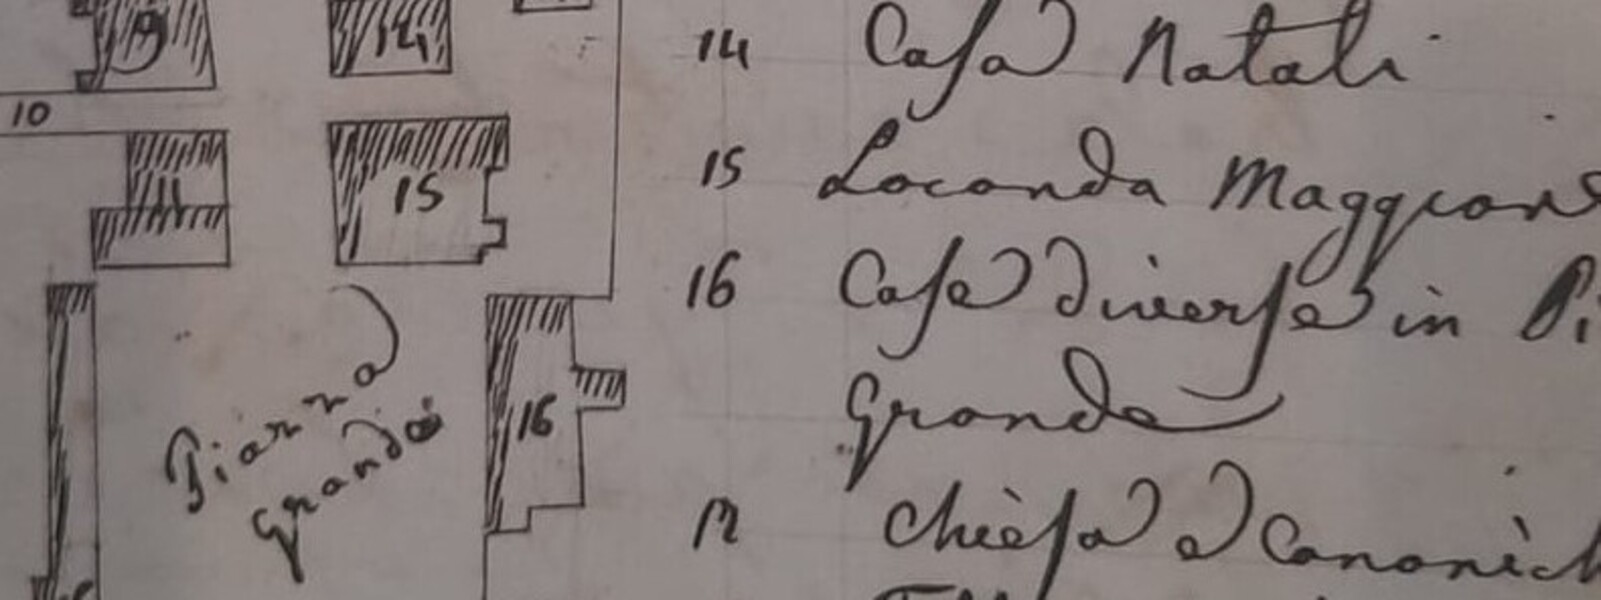 9
14
10
11
15
Piazza
grande
16
14 Casa Natali
15 Locanda Maggior
16 Case diverse in Pi
Grande
17 Chiesa e Canonich